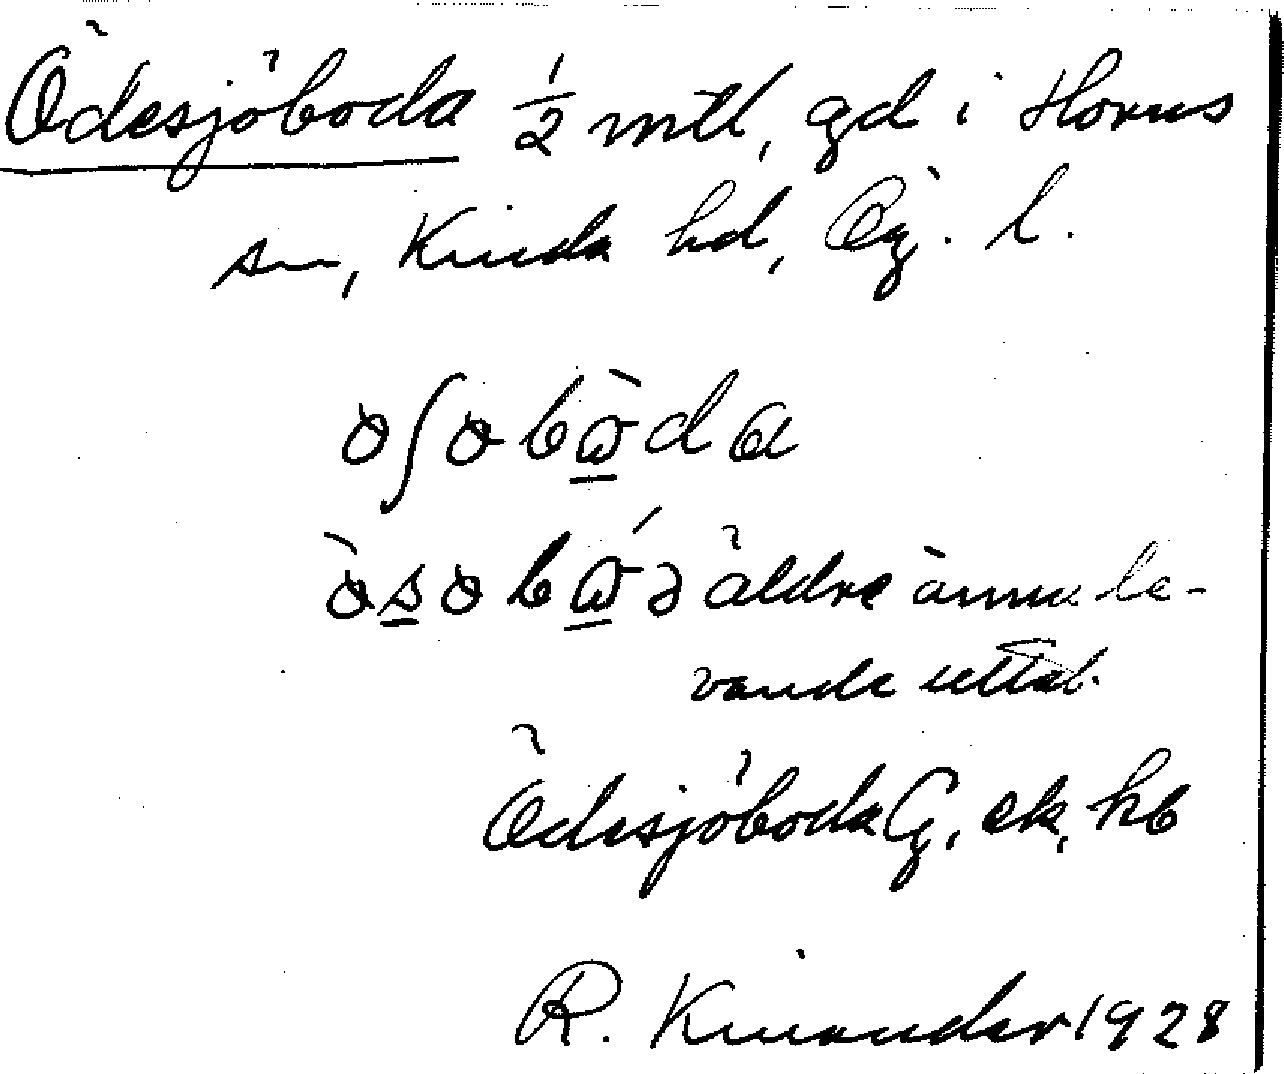 Ödesjöboda ½ mtl, gd i Horns
sn, Kinda hd, Ög. l.
äldre ännu le-
vande uttal.
Ödesjöboda G, ek, kb
R. Kinander 1928